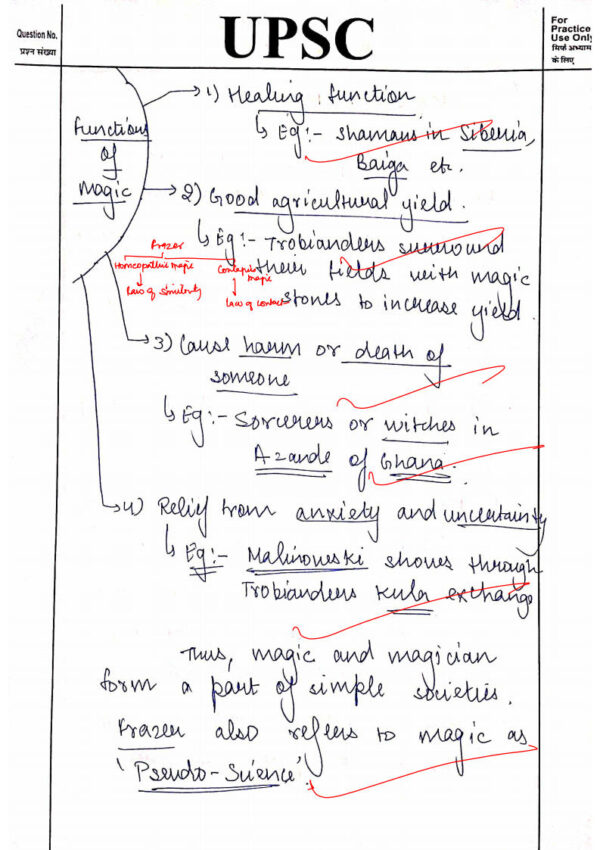 Question No.
प्रश्न संख्या
UPSC
For
Practice
Use Only
सिर्फ अभ्यास
के लिए
Functions
of
Magic
1) Healing function
↳ Eg:- Shamans in Siberia,
Baiga etc.
2) Good agricultural yield.
↳ Eg:- Trobianders surround
their fields with magic
stones to increase yield.
Frazer
Homeopathic magic
Law of Similarity
Contagious magic
Law of contact
3) Cause harm or death of
someone
↳ Eg:- Sorcerers or witches in
Azande of Ghana.
4) Relief from anxiety and uncertainty
↳ Eg:- Malinowski shows through
Trobianders Kula exchange
Thus, magic and magician
form a part of simple societies.
Frazer also refers to magic as
'Pseudo-Science'.